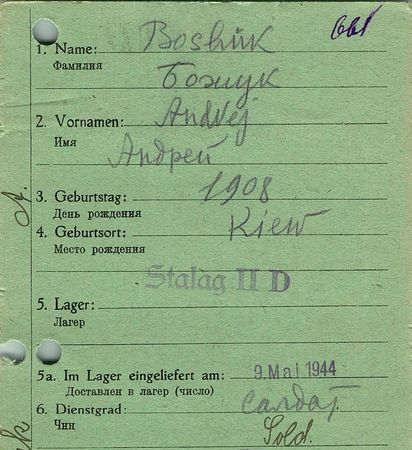 661
1. Name: Boshuk
Фамилия Божук
2. Vornamen: Andrej
Имя Андрей
3. Geburtstag: 1908
День рождения
4. Geburtsort: Kiew
Место рождения
Stalag II D
5. Lager:
Лагерь
5a. Im Lager eingeliefert am: 9. Mai 1944
Доставлен в лагерь (число)
6. Dienstgrad: салдат
Чин Sold.